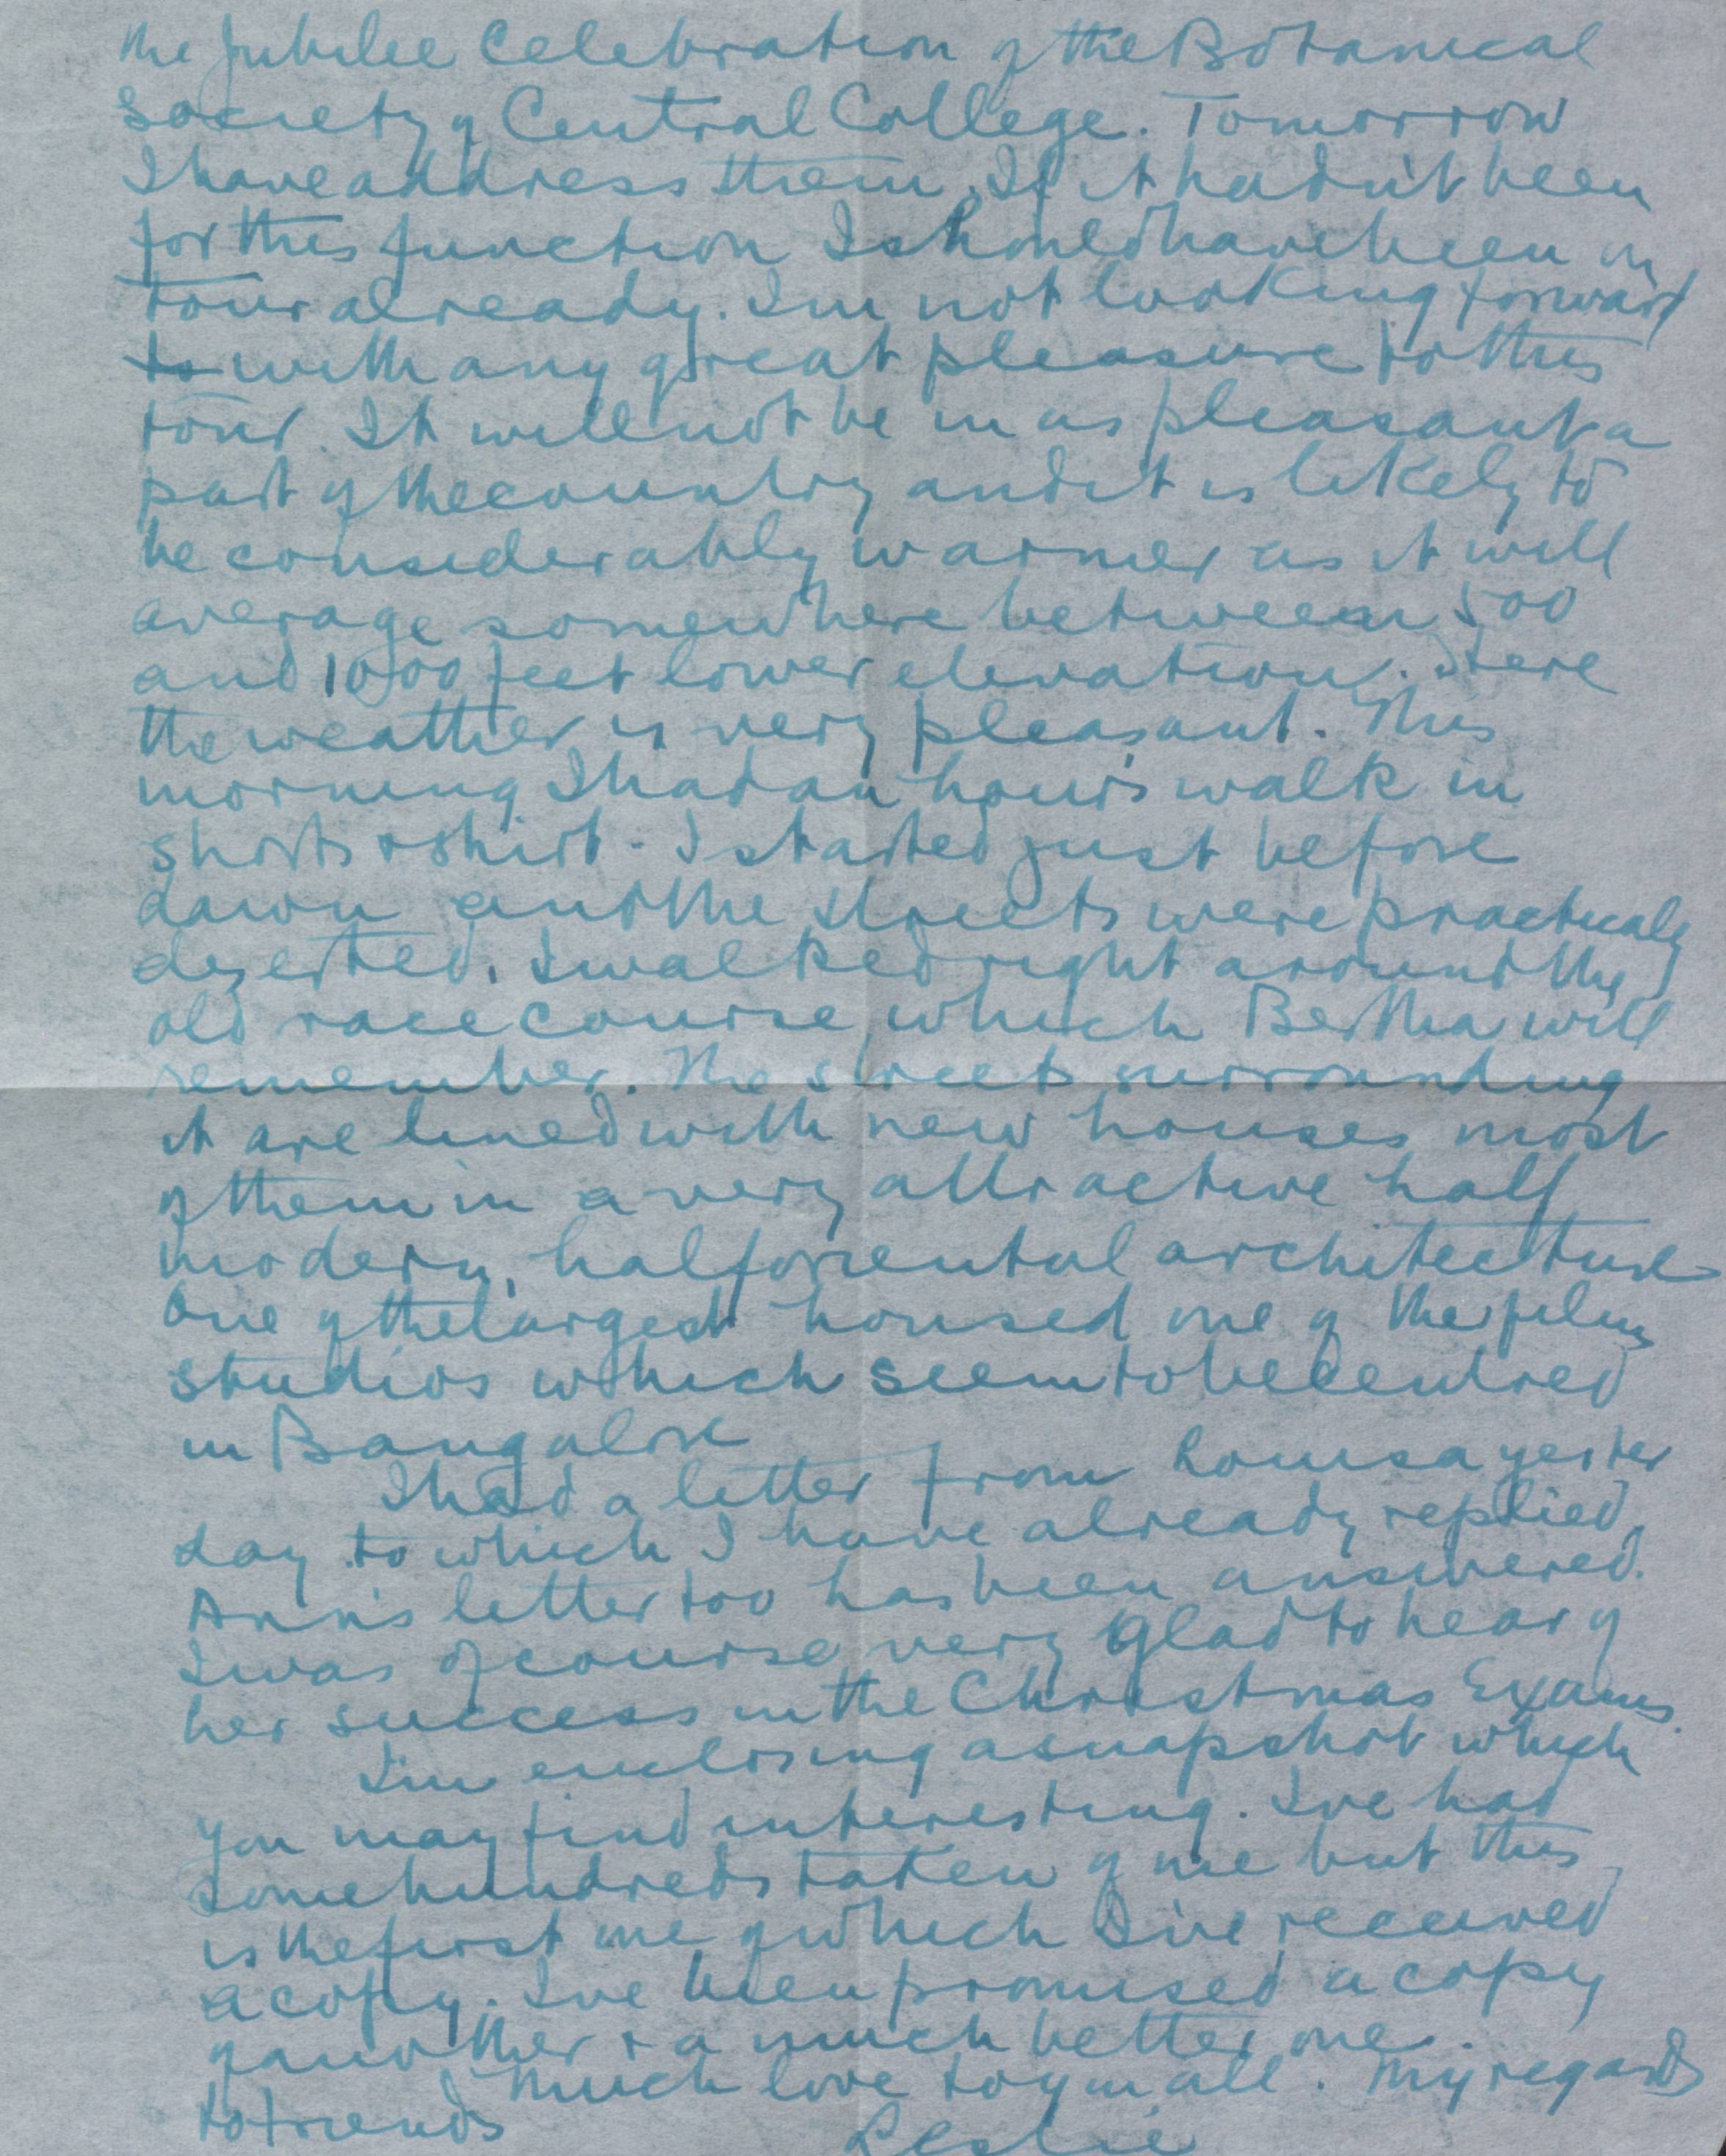 the Jubilee Celebration of the Botanical
Society of Central College. Tomorrow
I have address them. If it hadn't been
for this function I should have been on
tour already. I'm not looking forward
to with any great pleasure to this
tour. It will not be in as pleasant a
part of the country and it is likely to
be considerably warmer as it will
average somewhere between 500
and 1000 feet lower elevation. Here
the weather is very pleasant. This
morning I had an hour's walk in
shorts & shirt. I started just before
dawn and the streets were practically
deserted. I walked right around the
old race course which Bertha will
remember. The streets surrounding
it are lined with new houses most
of them in a very attractive half
modern, half oriental architecture
One of the largest housed one of the film
studios which seem to be centred
in Bangalore
I had a letter from Louisa yester
day to which I have already replied.
Ann's letter too has been answered.
I was of course very glad to hear of
her success in the Christmas Exams.
I'm enclosing a snapshot which
you may find interesting. I've had
some hundreds taken of me but this
is the first one of which I've received
a copy. I've been promised a copy
of another & a much better one.
Much love to you all. My regards
to friends
Leslie